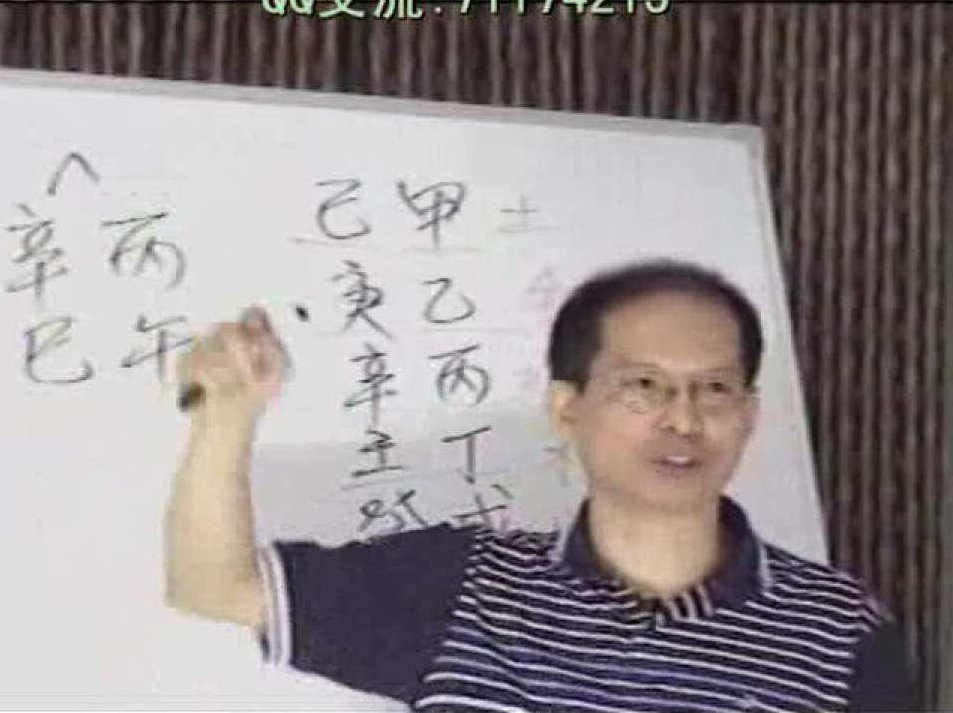 QQ交流:71174213
己甲土
辛丙
庚乙
巳午
辛丙
壬丁
癸戊